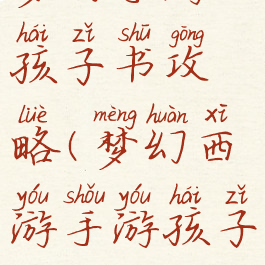 hái zǐ shū gōng
孩子书攻
lüè mèng huàn xī
略(梦幻西
yóu shǒu yóu hái zǐ
游手游孩子